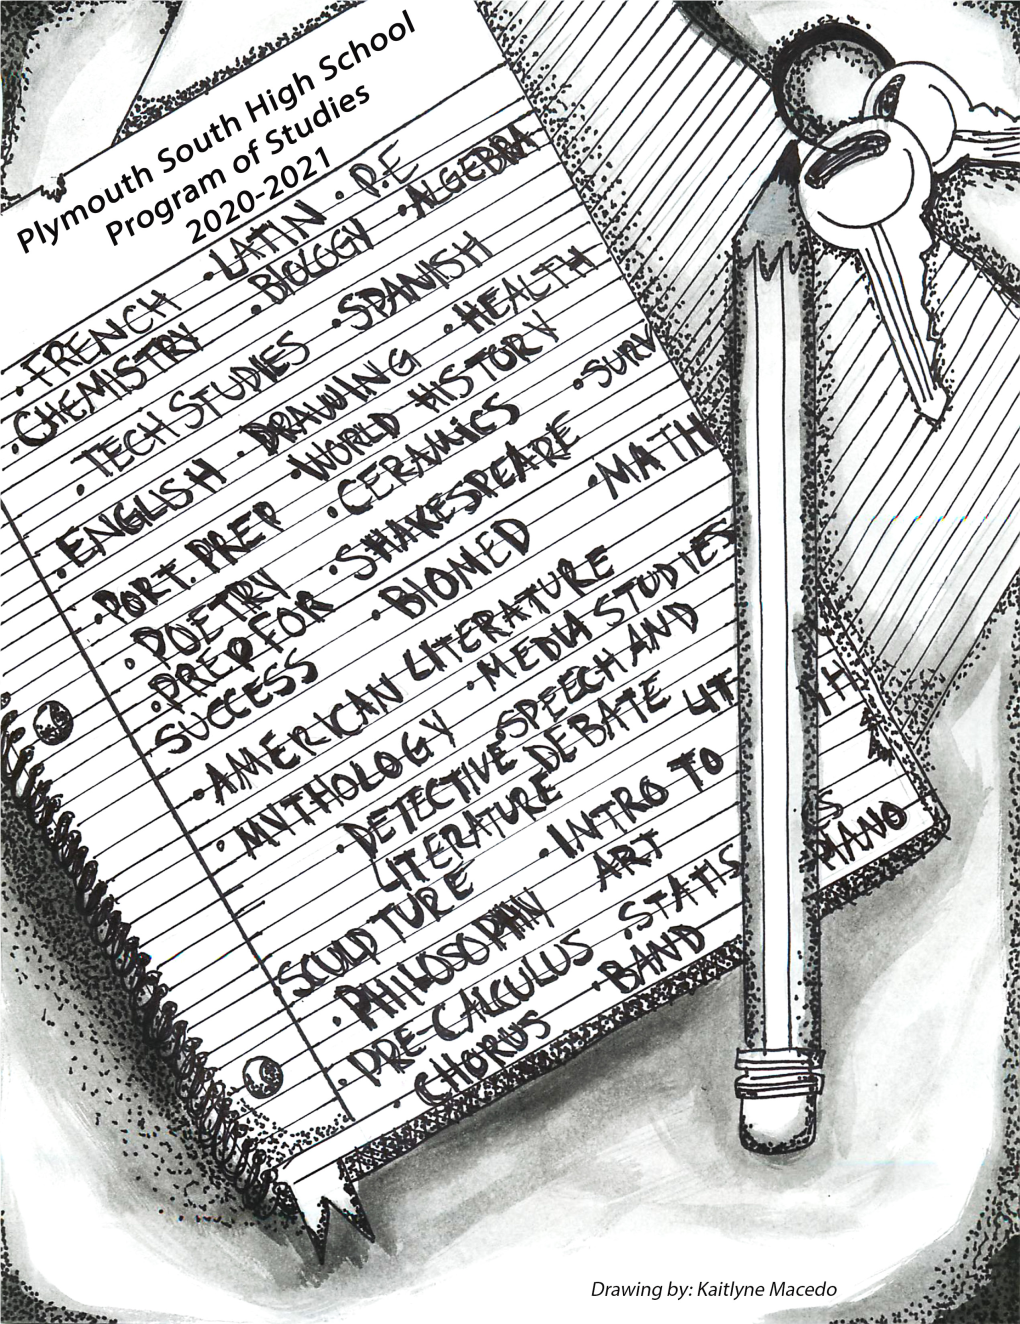 Plymouth South High School
Program of Studies
2020-2021
• FRENCH • LATIN • P.E
• CHEMISTRY • BIOLOGY • ALGEBRA
• TECH STUDIES • SPANISH
• ENGLISH • DRAWING • HEALTH
• PORT. PREP • WORLD HISTORY • SURV
• POETRY • CERAMICS
• PREP FOR • SHAKESPEARE • MATH
SUCCESS • BIOMED
• AMERICAN LITERATURE
• MYTHOLOGY • MEDIA STUDIES
• DETECTIVE • SPEECH AND
LITERATURE DEBATE LIT
SCULPTURE • INTRO TO
• PHILOSOPHY ART
• PRE-CALCULUS • STATIS S
• CHORUS • BAND PIANO
Drawing by: Kaitlyne Macedo